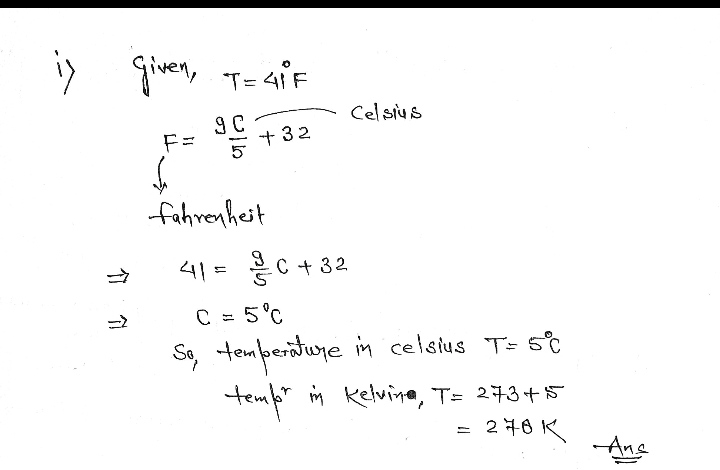 i) Given, T = 41°F
F = 9C/5 + 32 Celsius
fahrenheit
⇒ 41 = 9/5 C + 32
⇒ C = 5°C
So, temperature in celsius T = 5°C
tempr in Kelvin, T = 273 + 5
= 278 K
Ans